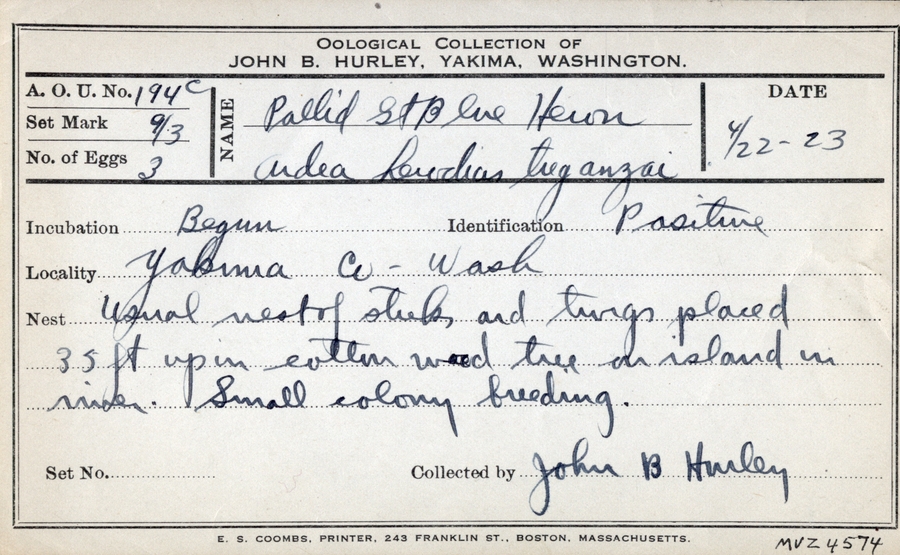 OOLOGICAL COLLECTION OF
JOHN B. HURLEY, YAKIMA, WASHINGTON.
A. O. U. No. 194c
Set Mark 9/3
No. of Eggs 3
NAME Pallid Gt Blue Heron
Ardea herodias treganzai
DATE
4/22-23
Incubation Begun Identification Positive
Locality Yakima Co - Wash
Nest Usual nest of sticks and twigs placed
35 ft up in cotton wood tree on island in
river. Small colony breeding.
Set No. Collected by John B Hurley
E. S. COOMBS, PRINTER, 243 FRANKLIN ST., BOSTON, MASSACHUSETTS.
MVZ 4574